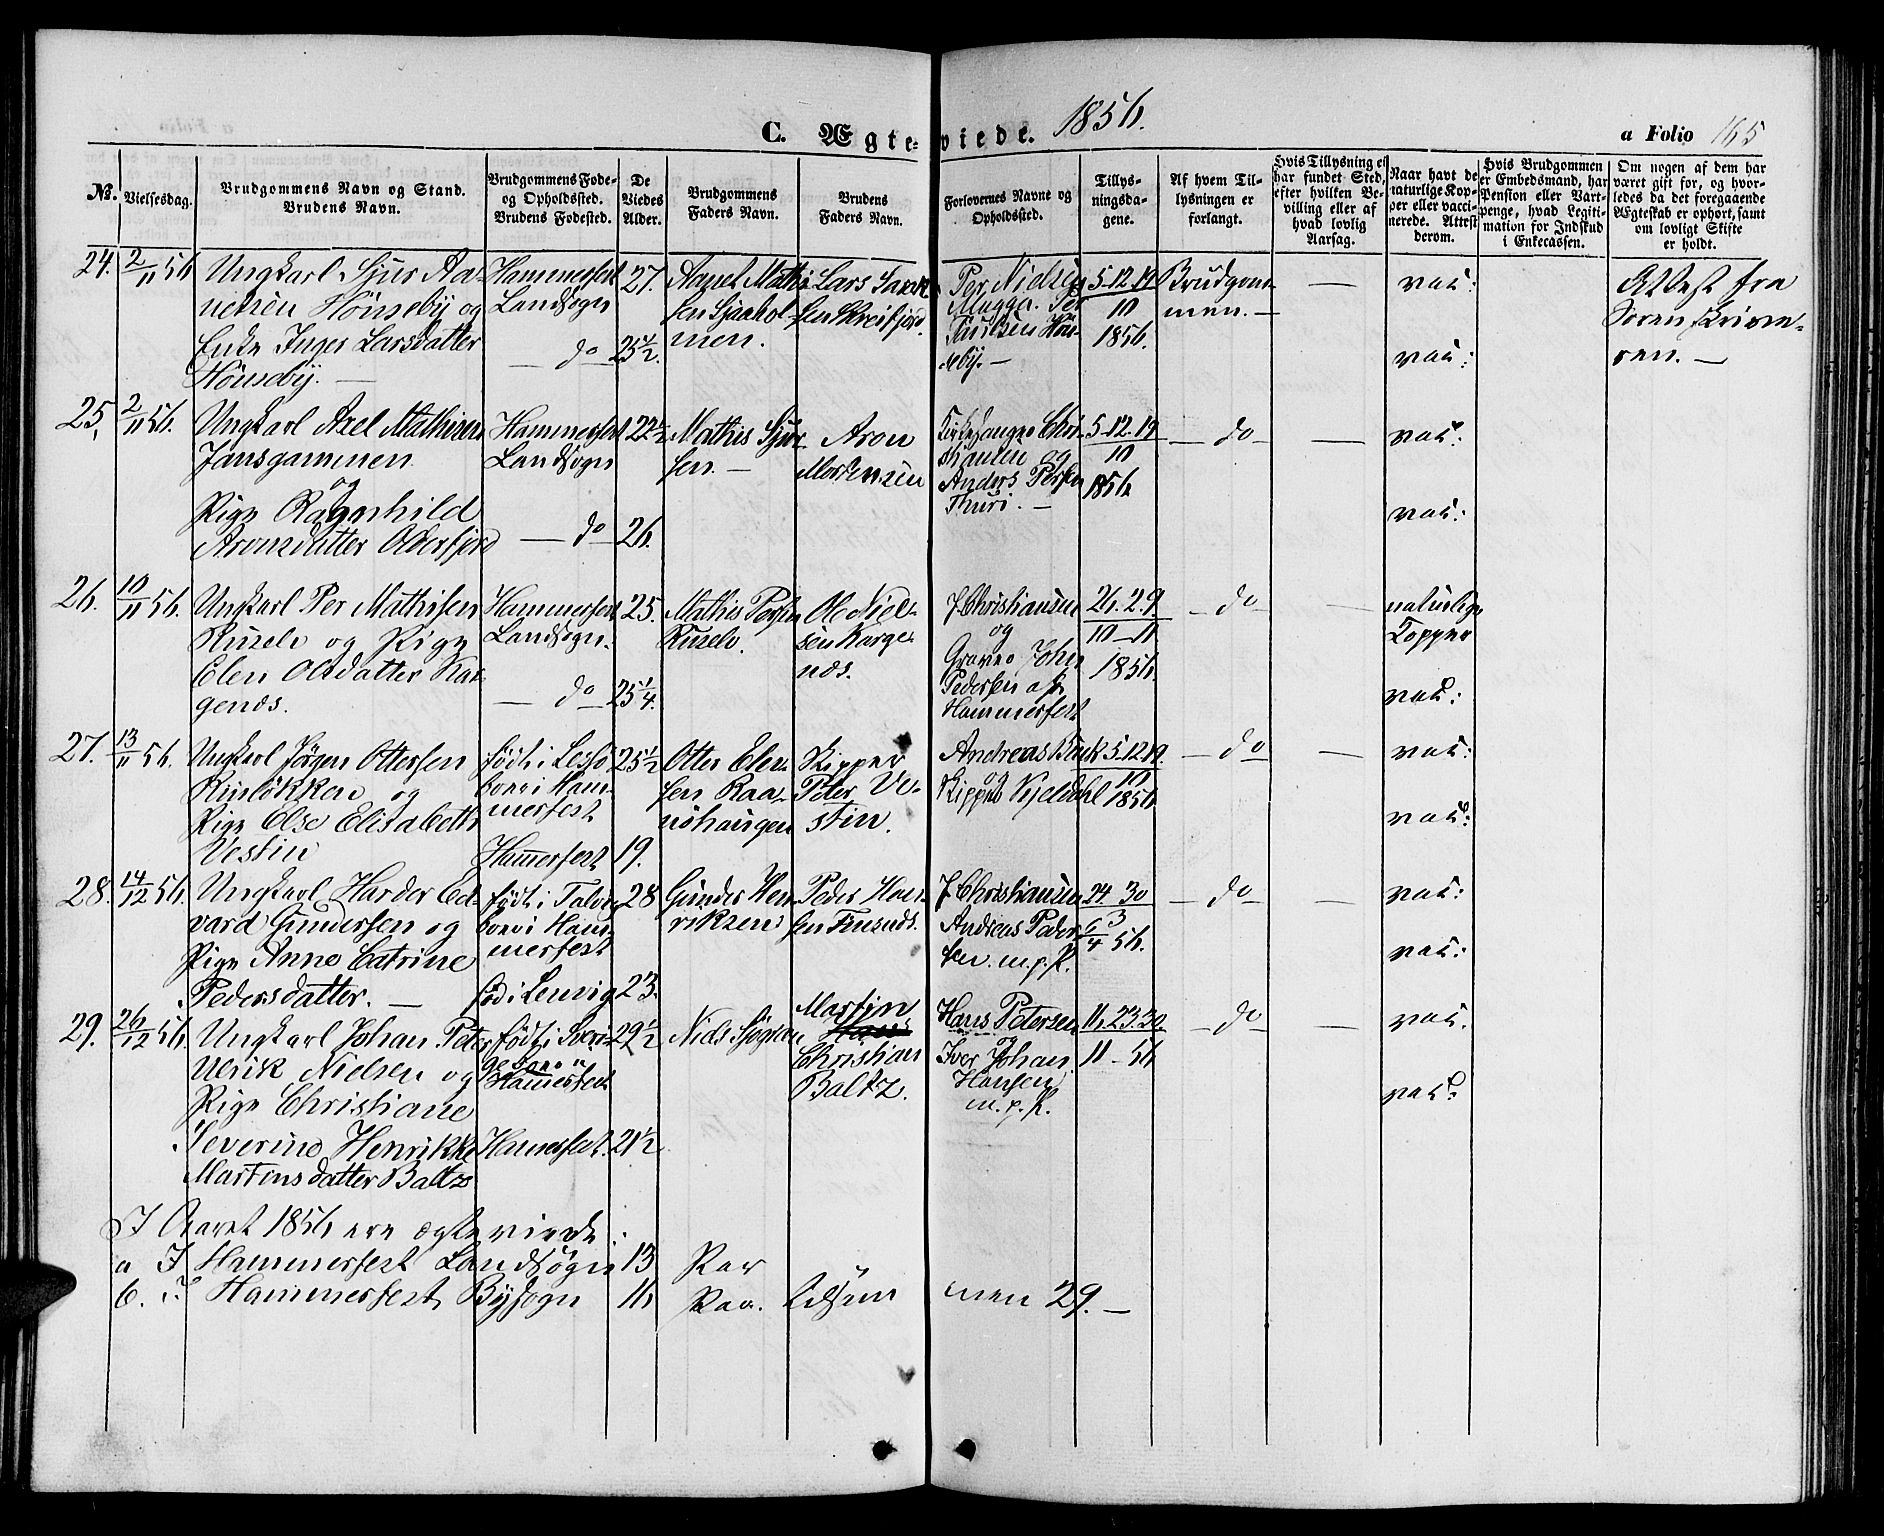 C. Ægteviede. 1856.
a Folio 165
No.
Vielsesdag.
Brudgommens Navn og Stand.
Brudens Navn.
Brudgommens Føde-
og Opholdssted.
Brudens Fødested.
De
Viedes
Alder.
Brudgommens
Faders Navn.
Brudens
Faders Navn.
Forlovernes Navne og
Opholdssted.
Tillys-
ningsda-
gene.
Af hvem Til-
lysningen er
forlangt.
Hvis Tillysning ei
har fundet Sted,
efter hvilken Be-
villing eller af
hvad lovlig
Aarsag.
Naar havt de
naturlige Kop-
per eller vacci-
nerede. Attest
derom.
Hvis Brudgommen
er Embedsmand, har
Pension eller Vart-
penge, hvad Legiti-
mation for Indskud
i Enkecassen.
Om nogen af dem har
været gift før, og hvor-
ledes da det foregaaende
Ægteskab er ophørt, samt
om lovligt Skifte
er holdt.
24. 2/11 56
Ungkarl Sjur Aa-
Hönseby og
Enke Inger Larsdatter
Hönseby. —
Hammerfest
Landsogn
— do —
27.
25 1/2.
Mathi-
sen
men.
Lars
sen
Per Nielsen
Mugge. Per
seby. —
5-12-19
10
1856.
Brudgom-
men. —
—
vac:
vac:
Attest fra
Soren skrive-
ren. —
25. 2/11 56.
Ungkarl Axel Mathisen
Jansgammen
og
Pige Ragnhild
Aronsdatter Olderfjord
Hammerfest
Landsogn
— do —
22 1/2
26.
Mathis Sjur-
sen. —
Aron
Mortensen
Kirkesanger Chri-
stiansen og
Anders Persen
Thuri. —
5-12-19
10
1856
— do —
—
vac:
vac:
26. 10/11 56.
Ungkarl Per Mathisen
Kuselv og Pige
Elen Olsdatter Kar-
genæs.
Hammerfest
Landsogn.
— do —
25.
25 1/4.
Mathis Persen
Kuselv.
Ole Niel-
sen Karge-
næs.
J Christiansen
og
Graver Johan
Pedersen af
Hammerfest
26. 2. 9.
10 — 11
1856.
— do —
—
naturlige
Kopper
vac:
27. 13/11 56.
Ungkarl Jörgen Ottersen
og
Pige Else Elisabeth
Vestin
födt i
boer i Ham-
merfest
Hammerfest
25 1/2
19.
Otter Elen-
sen Raa-
Skipper
Peter Ve-
stin.
Andreas Buck
og
Skipper Kjeldahl
5. 12 19.
10
1856.
— do —
—
vac:
vac:
28. 14/12 56.
Ungkarl Harder Ed-
vard Gundersen og
Pige Anne Catrine
Pedersdatter. —
födt i Talvig
boer i Ham-
merfest
föd i Lenvig
28
23.
Gunder Hen-
riksen
Peder Han-
sen
J Christiansen
Andreas Peder-
sen. m. p. P.
24 30
56.
— do —
—
vac:
vac:
29. 26/12 56.
Ungkarl Johan Peter
Ulrik Nielsen og
Pige Christiane
Severine Henrikke
Martinsdatter Baltz
födt i Sveri-
ge boer i
Hammerfest
Hammerfest.
29 1/2
21 1/2
Niels
Martin
Christian
Baltz.
Hans Petersen
og
Iver Johan
Hansen
m. p. P.
16. 23. 30
11 — 56
— do —
—
vac.
vac:
I Aaret 1856 ere ægteviede:
a I Hammerfest Landsogn 13 Par
b. I Hammerfest Bysogn 16 Par. tilsammen 29. —